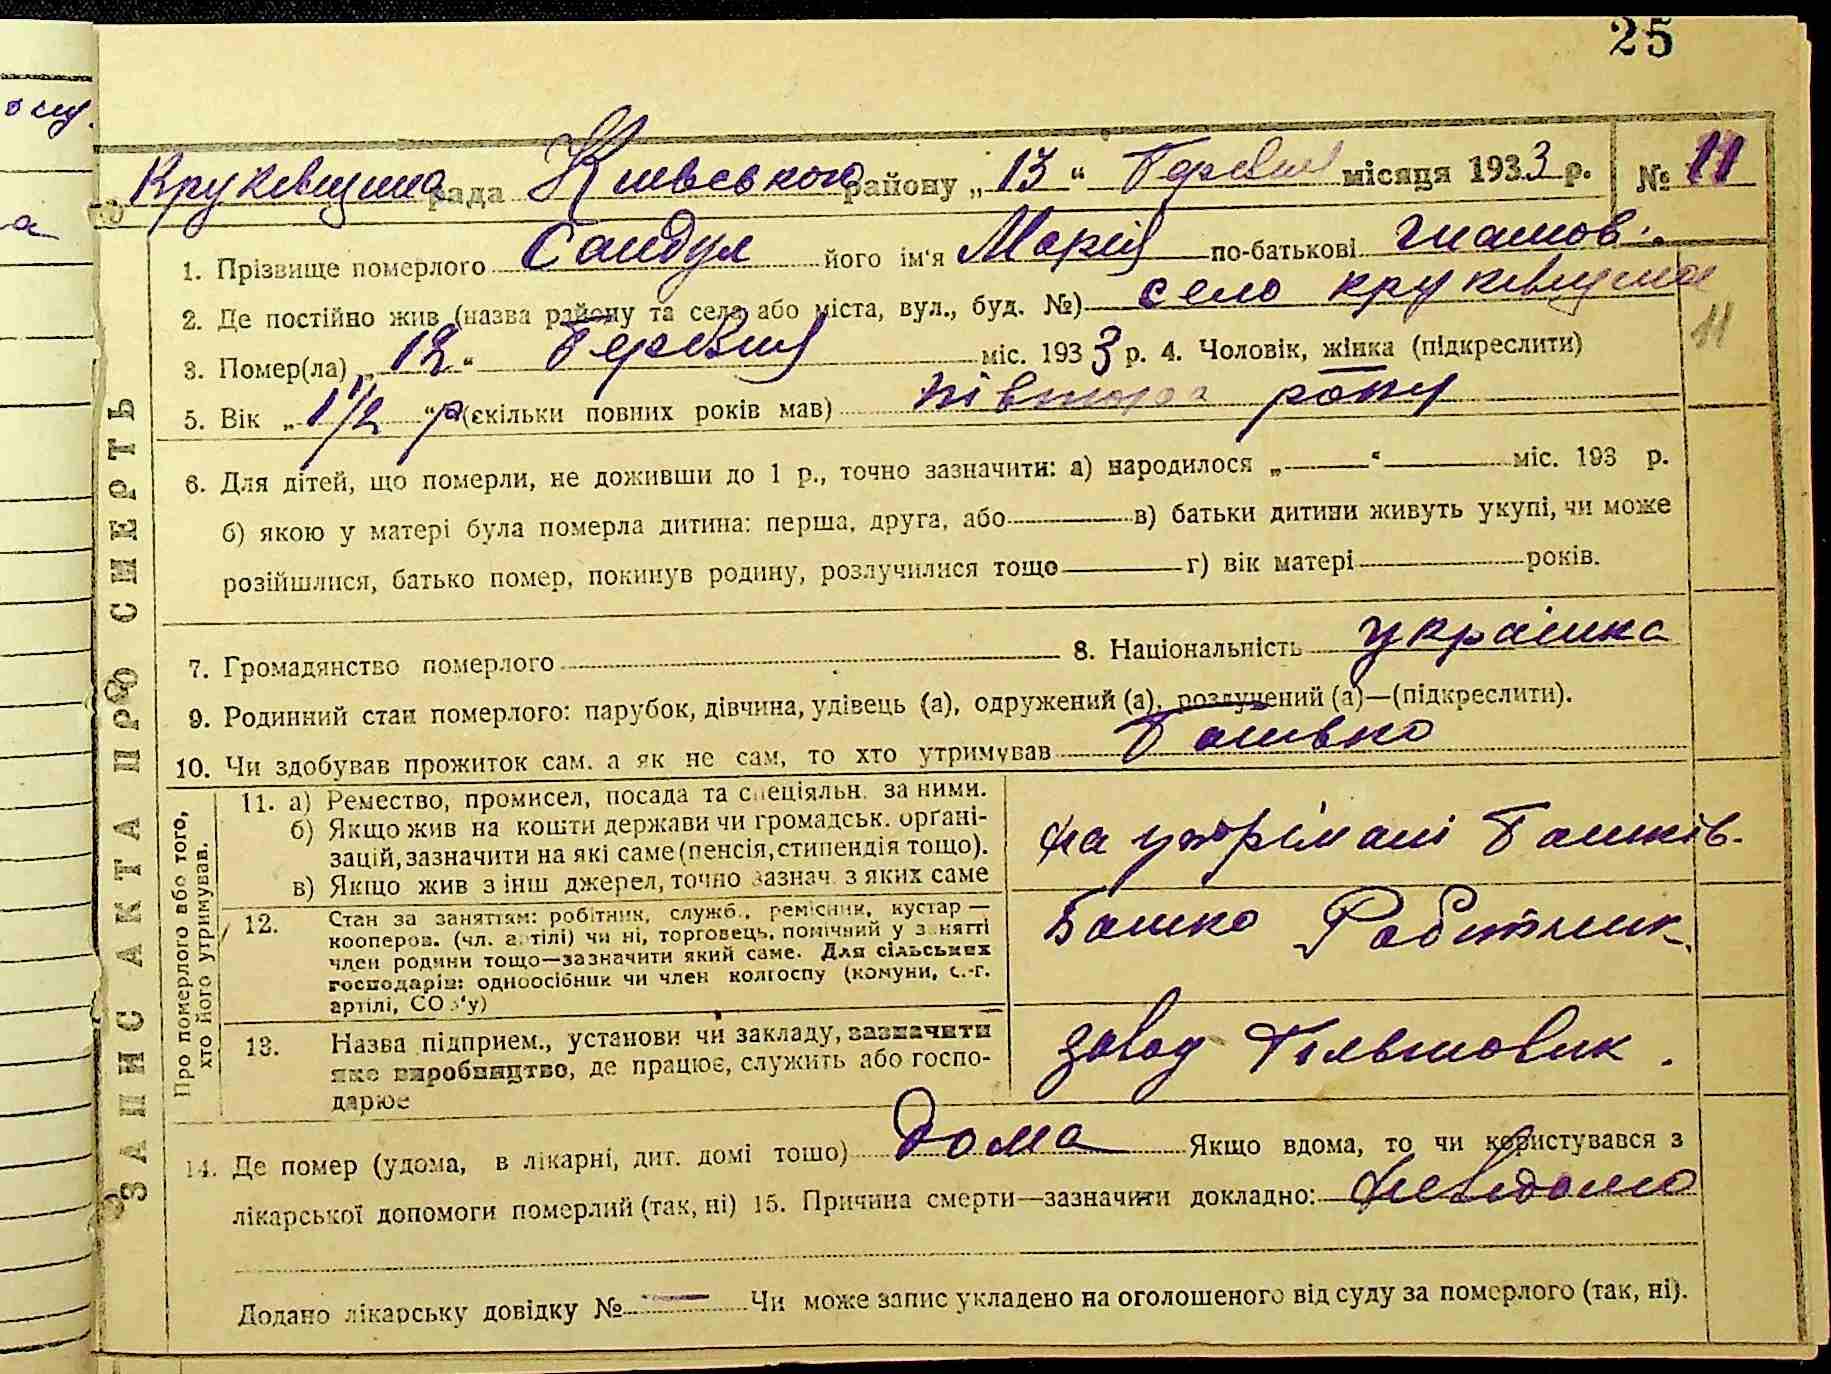 25
осу.
а
Круківщина рада Київського району „13“ Березня місяця 1933 р. № 11
1. Прізвище померлого Сандул його ім'я Марія по-батькові Гнатов.
2. Де постійно жив (назва району та села або міста, вул., буд. №) село круківщина
11
3. Помер(ла) „12“ Березня міс. 1933 р. 4. Чоловік, жінка (підкреслити)
5. Вік „1½“ р (скільки повних років мав) півтора року
6. Для дітей, що померли, не доживши до 1 р., точно зазначити: а) народилося „—“ — міс. 193 р.
б) якою у матері була померла дитина: перша, друга, або — в) батьки дитини живуть укупі, чи може
розійшлися, батько помер, покинув родину, розлучилися тощо — г) вік матері — років.
7. Громадянство померлого 8. Національність українка
9. Родинний стан померлого: парубок, дівчина, удівець (а), одружений (а), розлучений (а)—(підкреслити).
10. Чи здобував прожиток сам. а як не сам, то хто утримував Батько
ЗАПИС АКТА ПРО СМЕРТЬ
Про померлого або того,
хто його утримував.
11. а) Ремество, промисел, посада та спеціяльн. за ними.
б) Якщо жив на кошти держави чи громадськ. орґані-
зацій, зазначити на які саме (пенсія, стипендія тощо).
в) Якщо жив з інш джерел, точно зазнач. з яких саме
на утрімані Батьків.
12. Стан за заняттям: робітник, служб., ремісник, кустар —
кооперов. (чл. артілі) чи ні, торговець, помічний у занятті
член родини тощо—зазначити який саме. Для сільських
господарів: одноосібник чи член колгоспу (комуни, с.-г.
артілі, СОЗ'у)
Батько Робітник.
13. Назва підприєм., установи чи закладу, зазначити
яке виробництво, де працює, служить або госпо-
дарює
завод Більшовик.
14. Де помер (удома, в лікарні, дит. домі тощо) Дома Якщо вдома, то чи користувався з
лікарської допомоги померлий (так, ні) 15. Причина смерти—зазначити докладно: Невідомо
Додано лікарську довідку № — Чи може запис укладено на оголошеного від суду за померлого (так, ні).